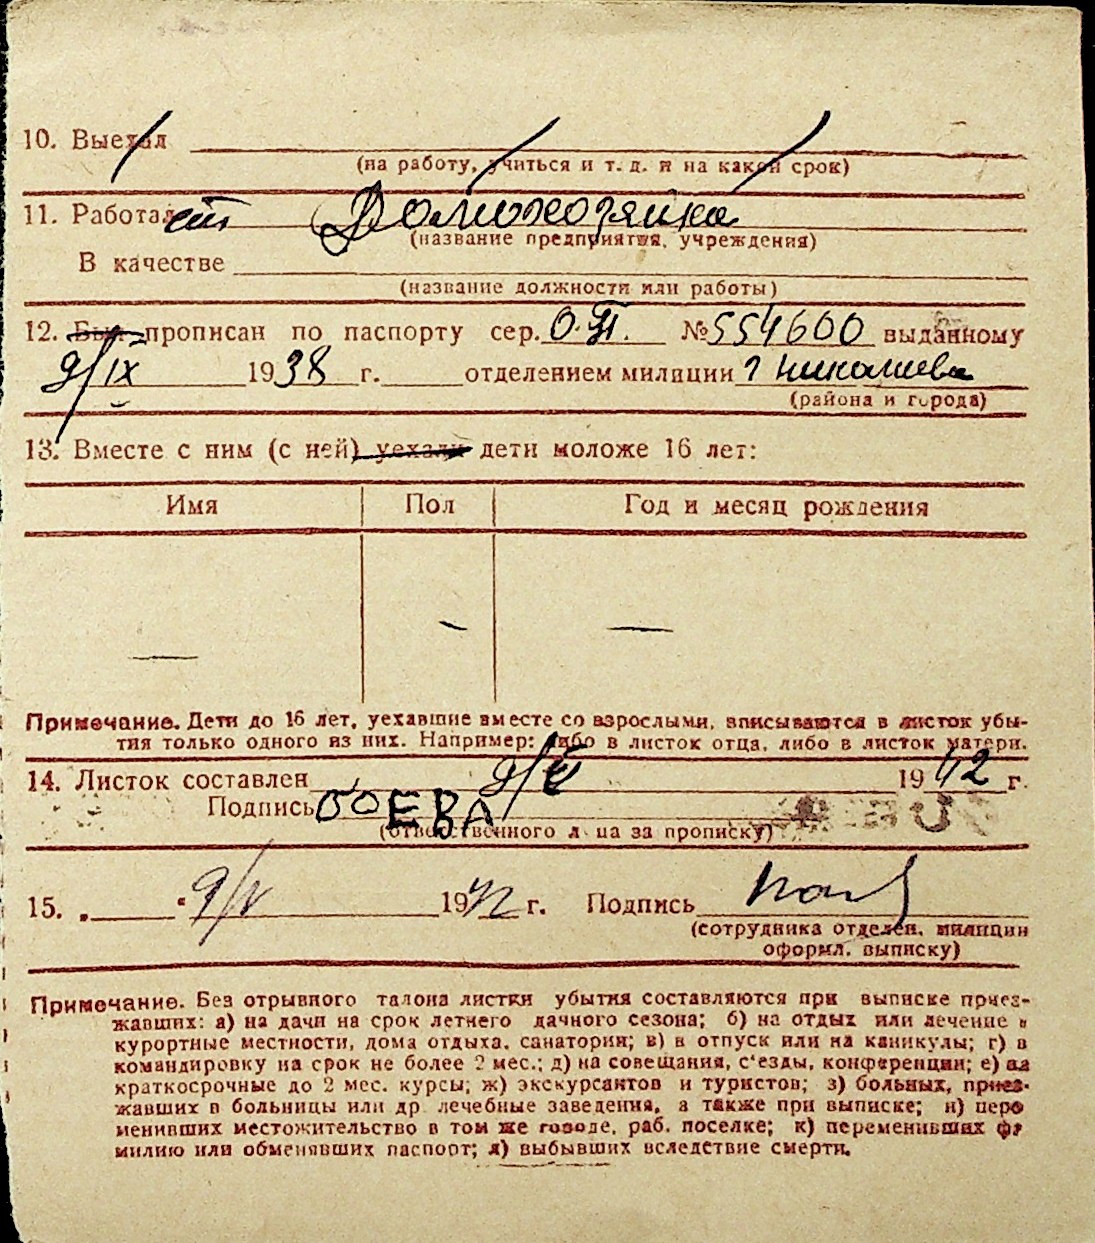 10. Выехал
(на работу, учиться и т. д. и на какой срок)
11. Работает Домохозяйка
(название предприятия, учреждения)
В качестве
(название должности или работы)
12. Был прописан по паспорту сер. №554600 выданному
9/IX 1938 г. отделением милиции г Николаева
(района и города)
13. Вместе с ним (с ней) уехали дети моложе 16 лет:
Имя Пол Год и месяц рождения
— — —
Примечание. Дети до 16 лет, уехавшие вместе со взрослыми, вписываются в листок убы-
тия только одного из них. Например: либо в листок отца, либо в листок матери.
14. Листок составлен 1942 г.
Подпись БОЕВА
(ответственного лица за прописку)
15. „ “ 9/V 1942 г. Подпись
(сотрудника отделен. милиции
оформл. выписку)
Примечание. Без отрывного талона листки убытия составляются при выписке приез-
жавших: а) на дачи на срок летнего дачного сезона; б) на отдых или лечение в
курортные местности, дома отдыха, санатории; в) в отпуск или на каникулы; г) в
командировку на срок не более 2 мес.; д) на совещания, с'езды, конференции; е) на
краткосрочные до 2 мес. курсы; ж) экскурсантов и туристов; з) больных, приез-
жавших в больницы или др. лечебные заведения, а также при выписке; и) пере
менивших местожительство в том же городе, раб. поселке; к) переменивших фа
милию или обменявших паспорт; л) выбывших вследствие смерти.